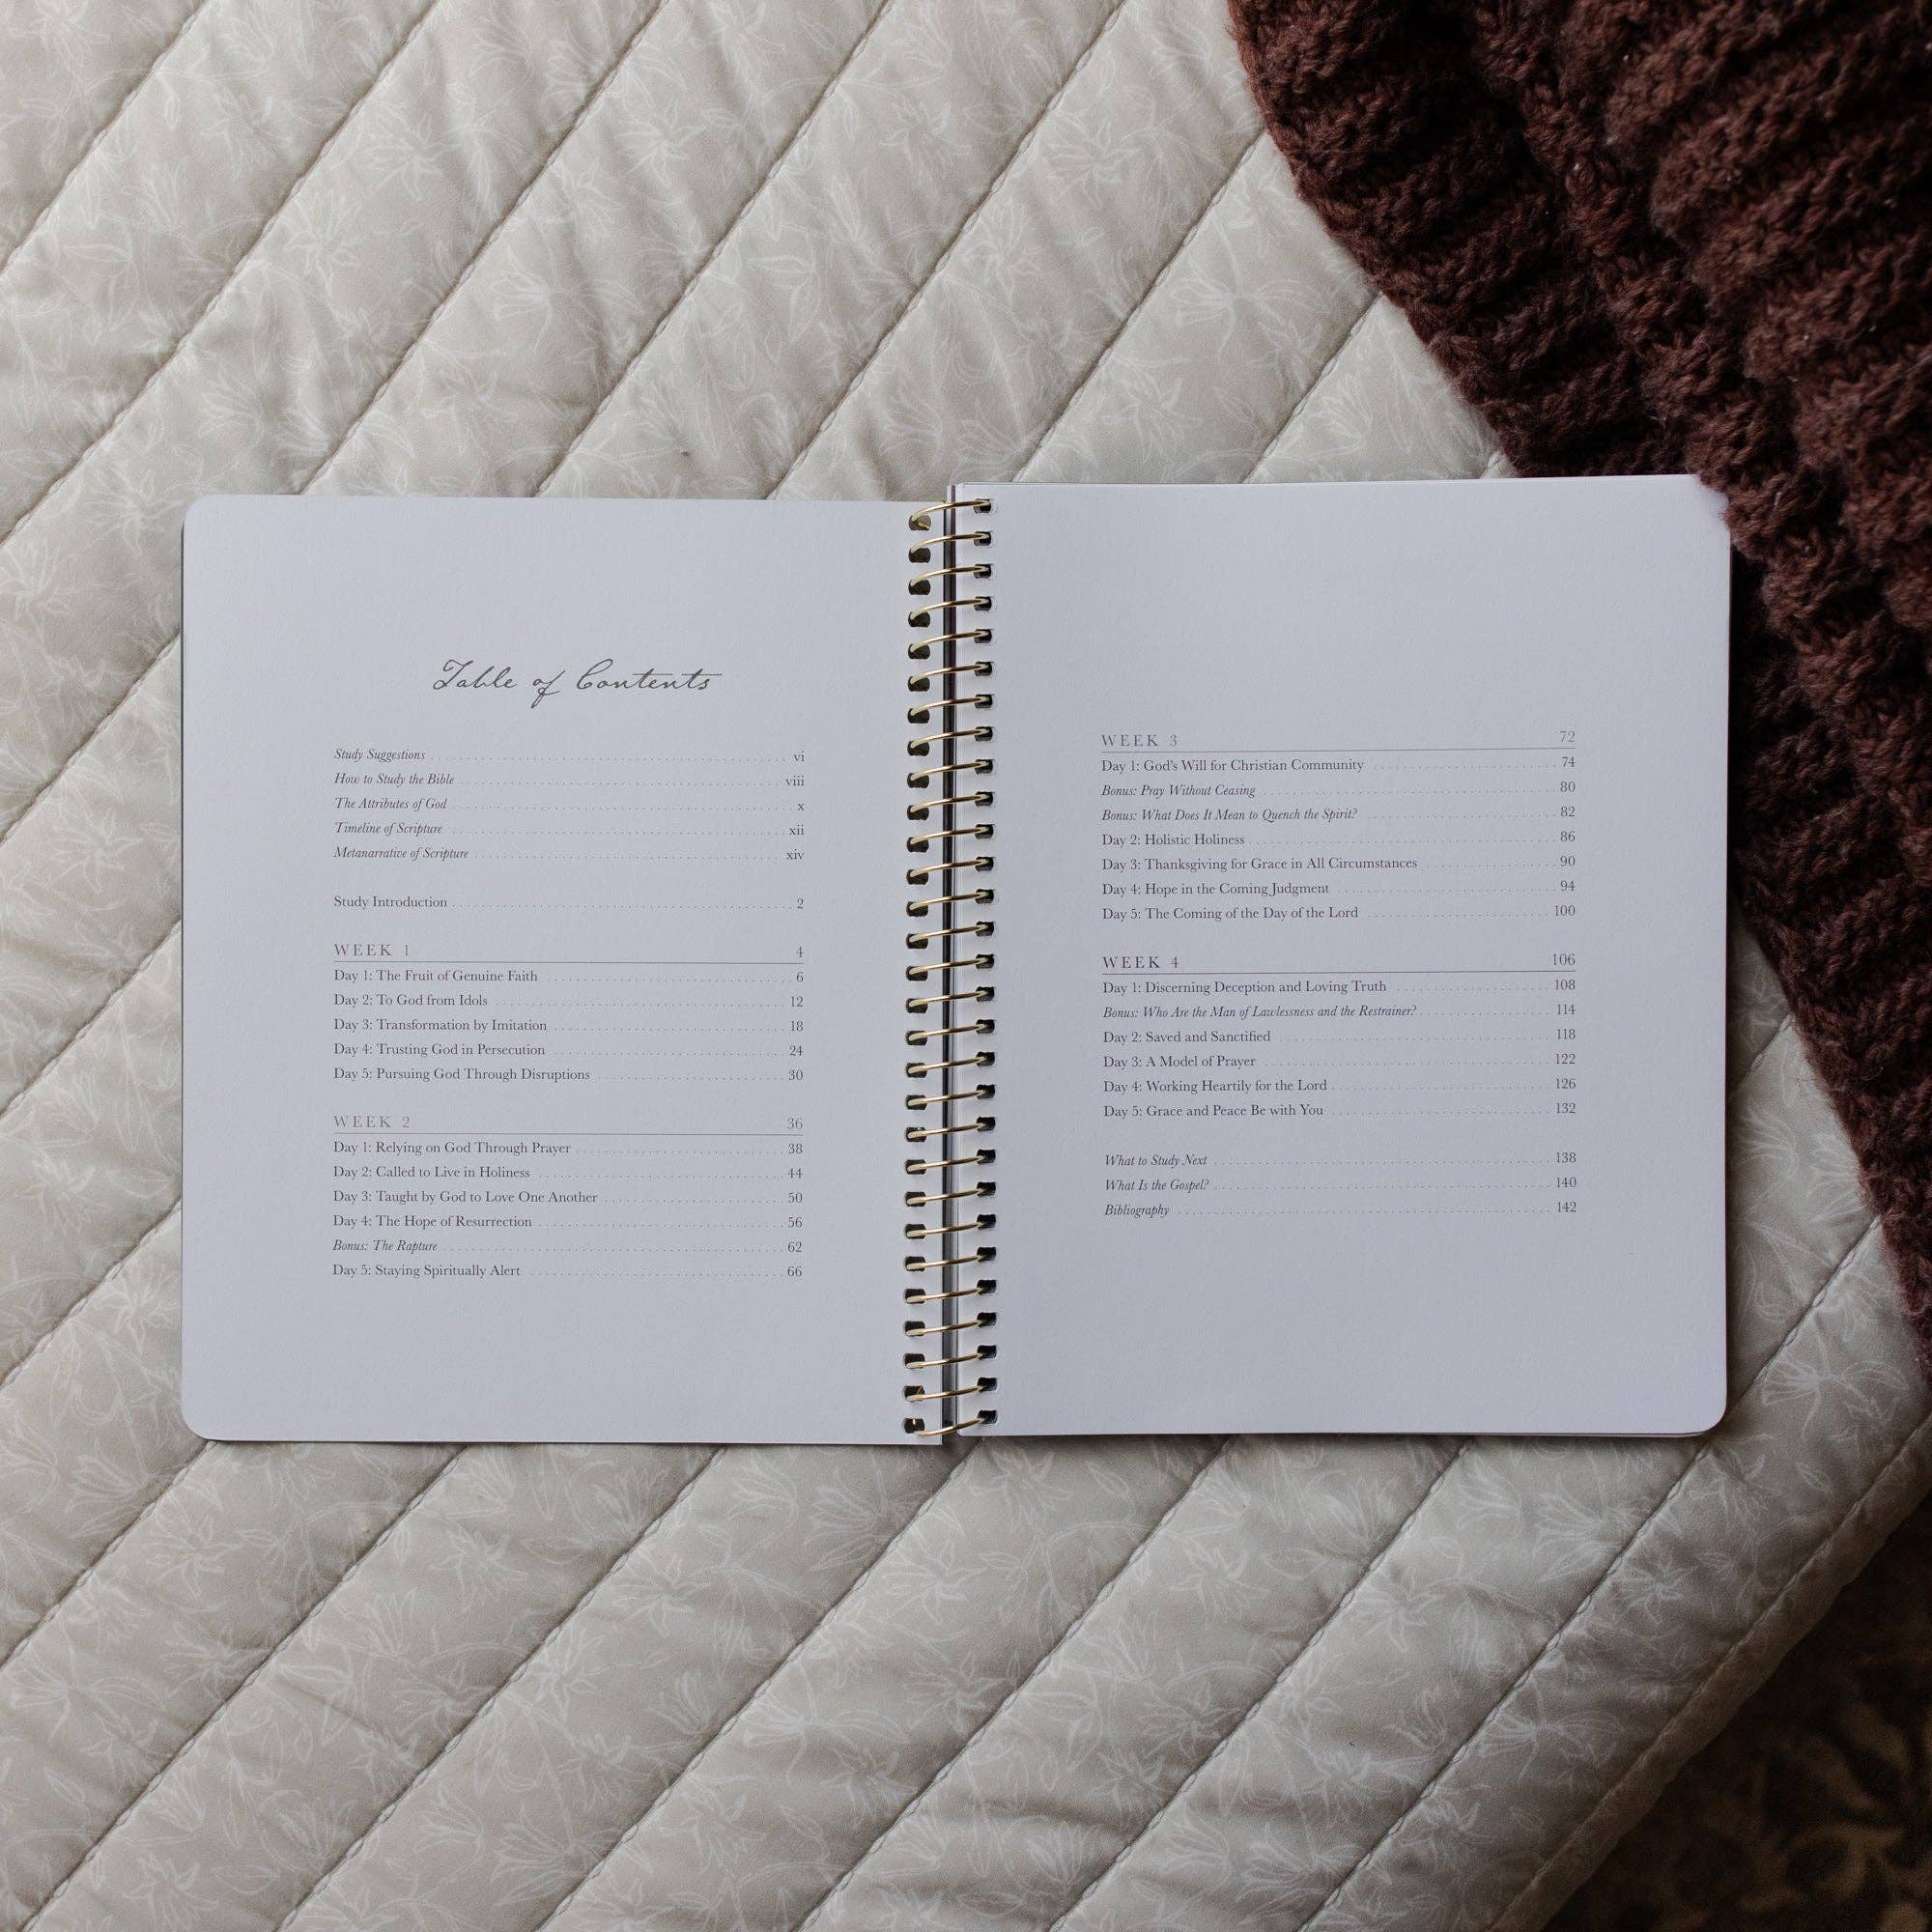 Table of Contents
Study Suggestions vi
How to Study the Bible viii
The Attributes of God x
Timeline of Scripture xii
Metanarrative of Scripture xiv
Study Introduction 2
WEEK 1 4
Day 1: The Fruit of Genuine Faith 6
Day 2: To God from Idols 12
Day 3: Transformation by Imitation 18
Day 4: Trusting God in Persecution 24
Day 5: Pursuing God Through Disruptions 30
WEEK 2 36
Day 1: Relying on God Through Prayer 38
Day 2: Called to Live in Holiness 44
Day 3: Taught by God to Love One Another 50
Day 4: The Hope of Resurrection 56
Bonus: The Rapture 62
Day 5: Staying Spiritually Alert 66
WEEK 3 72
Day 1: God's Will for Christian Community 74
Bonus: Pray Without Ceasing 80
Bonus: What Does It Mean to Quench the Spirit? 82
Day 2: Holistic Holiness 86
Day 3: Thanksgiving for Grace in All Circumstances 90
Day 4: Hope in the Coming Judgment 94
Day 5: The Coming of the Day of the Lord 100
WEEK 4 106
Day 1: Discerning Deception and Loving Truth 108
Bonus: Who Are the Man of Lawlessness and the Restrainer? 114
Day 2: Saved and Sanctified 118
Day 3: A Model of Prayer 122
Day 4: Working Heartily for the Lord 126
Day 5: Grace and Peace Be with You 132
What to Study Next 138
What Is the Gospel? 140
Bibliography 142